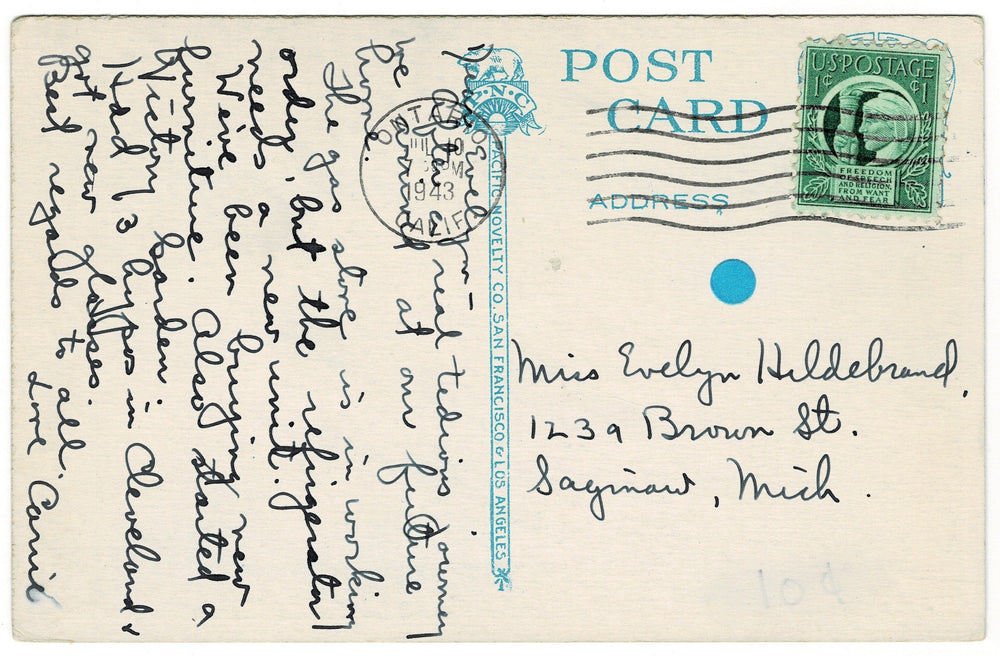 Dear Evelyn –
After a real tedious journey
we arrived at our future
home.
The gas stove is in working
order, but the refrigerator
needs a new unit.
We've been buying new
furniture. Also started a
Victory Garden.
Had 13 hypos in Cleveland &
got new glasses.
Best regards to all.
Love Carrie
P.N.C.
PACIFIC NOVELTY CO. SAN FRANCISCO & LOS ANGELES
POST
CARD
ADDRESS
ONTARIO
7 PM
1943
CALIF.
U.S. POSTAGE
1¢ ¢1
FREEDOM
OF SPEECH
AND RELIGION,
FROM WANT
AND FEAR
Miss Evelyn Hildebrand,
1239 Brown St.
Saginaw, Mich.
10¢